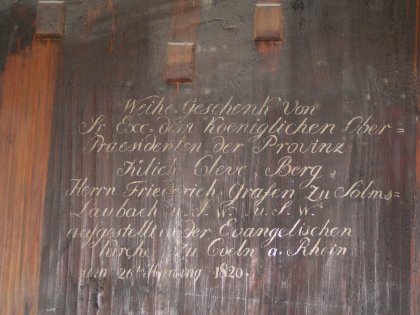 Weihe-Geschenk von
Sr Exc. dem Koeniglichen Ober=
Praesidenten der Provinz
Jülich Cleve, Berg,
Herrn Friederich, Grafen zu Solms=
Laubach u. S. W. u. S. W.
aufgestellt in der Evangelischen
Kirche zu Coeln a. Rhein
um 26t 1820.